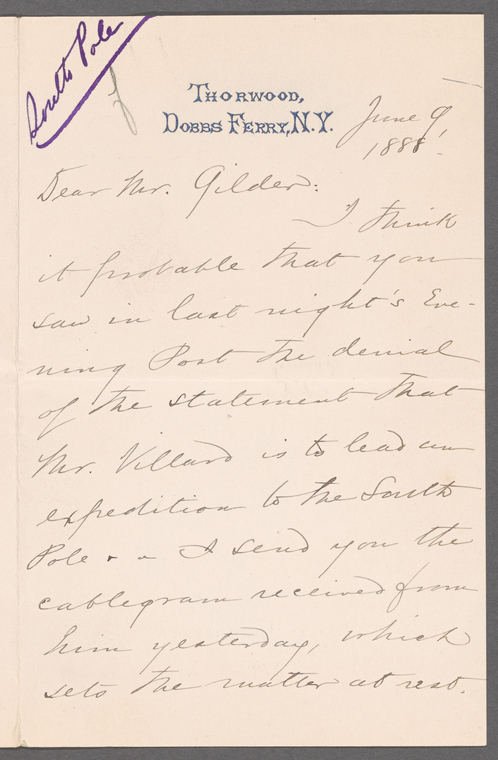 South Pole
THORWOOD,
DOBBS FERRY, N.Y.
June 9
1888.
Dear Mr. Gilder:
I think
it probable that you
saw in last night's Eve-
ning Post the denial
of the statement that
Mr. Villard is to lead an
expedition to the South
Pole. I send you the
cablegram received from
him yesterday, which
sets the matter at rest.